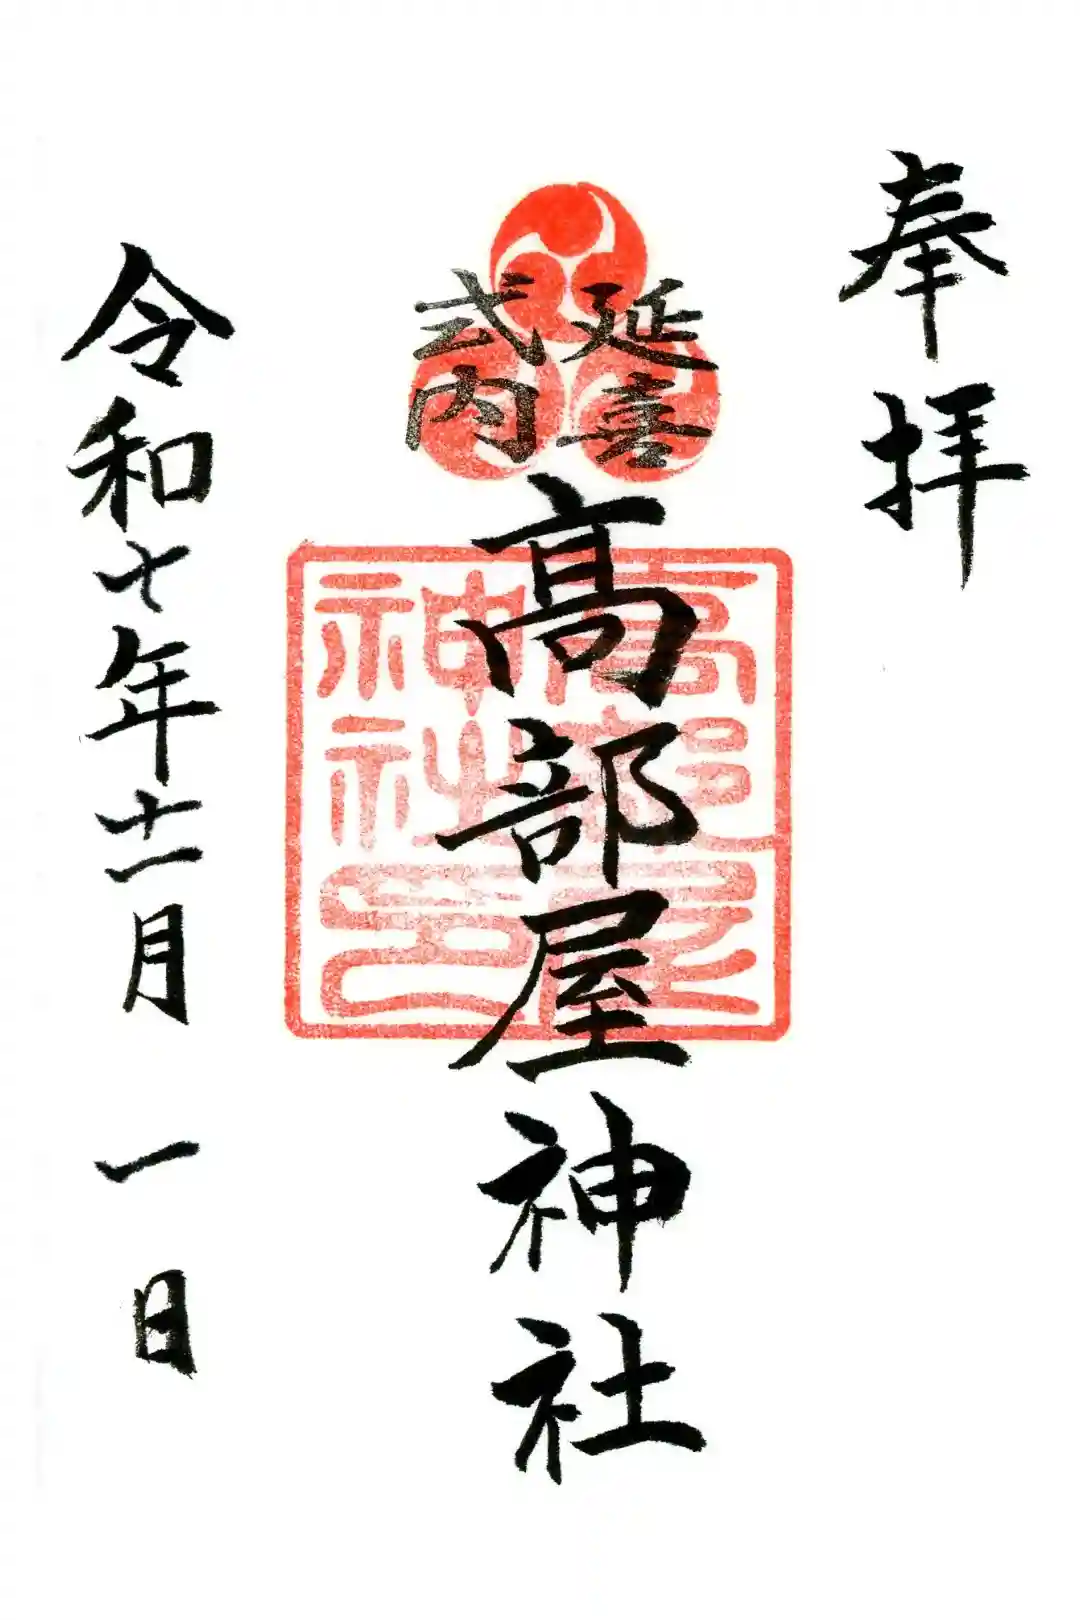 奉拝
延喜
式内
髙部屋神社
高部屋
神社印
令和七年十一月 一日